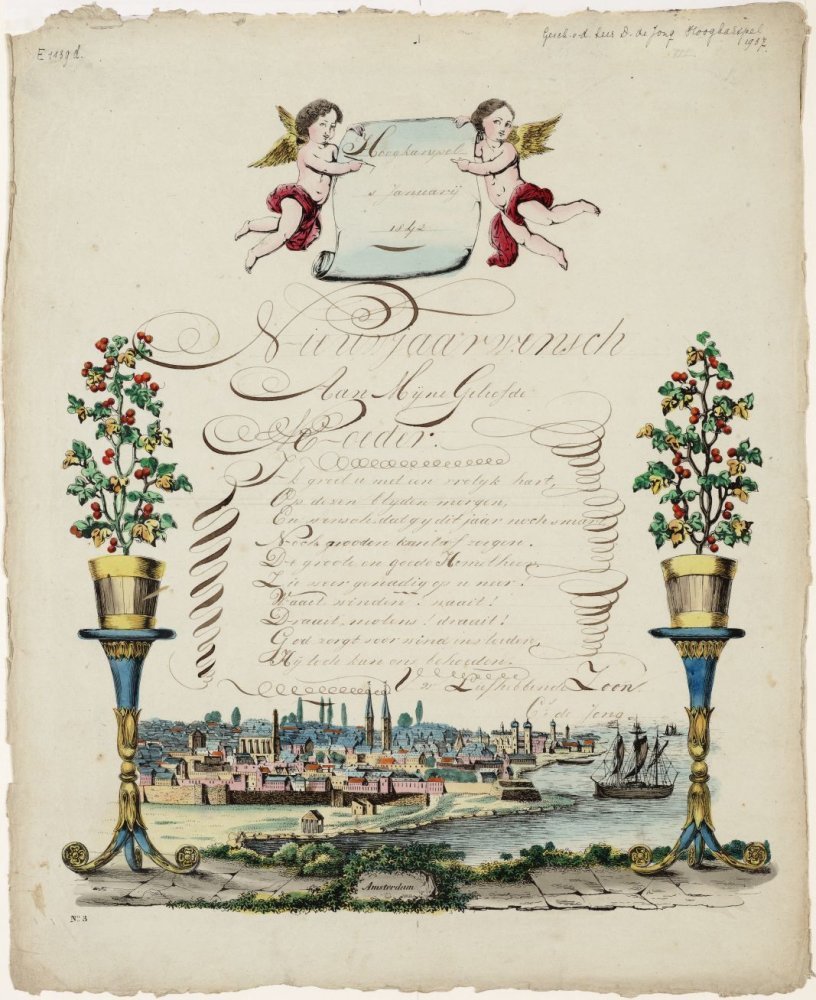 E 1139d.
Gesch. v. d. Heer D. de Jong Hoogkarspel
1937
Hoogkarspel
1 Januarij
1842
Nieuwjaarwensch
Aan Mijne Geliefde
Moeder.
Ik groet u met een vrolyk hart,
Op dezen blijden morgen,
En wensch dat gy dit jaar noch smart
Noch nooden hebt of zorgen.
De groote en goede Hemelheer
Zie weer genadig op u neer.
Waait winden! waait!
Draait molens! draait!
God zorgt voor wind en leiden,
Hij kan ons behouden.
Uw Liefhebbende Zoon
de Jong
Amsterdam
No. 3